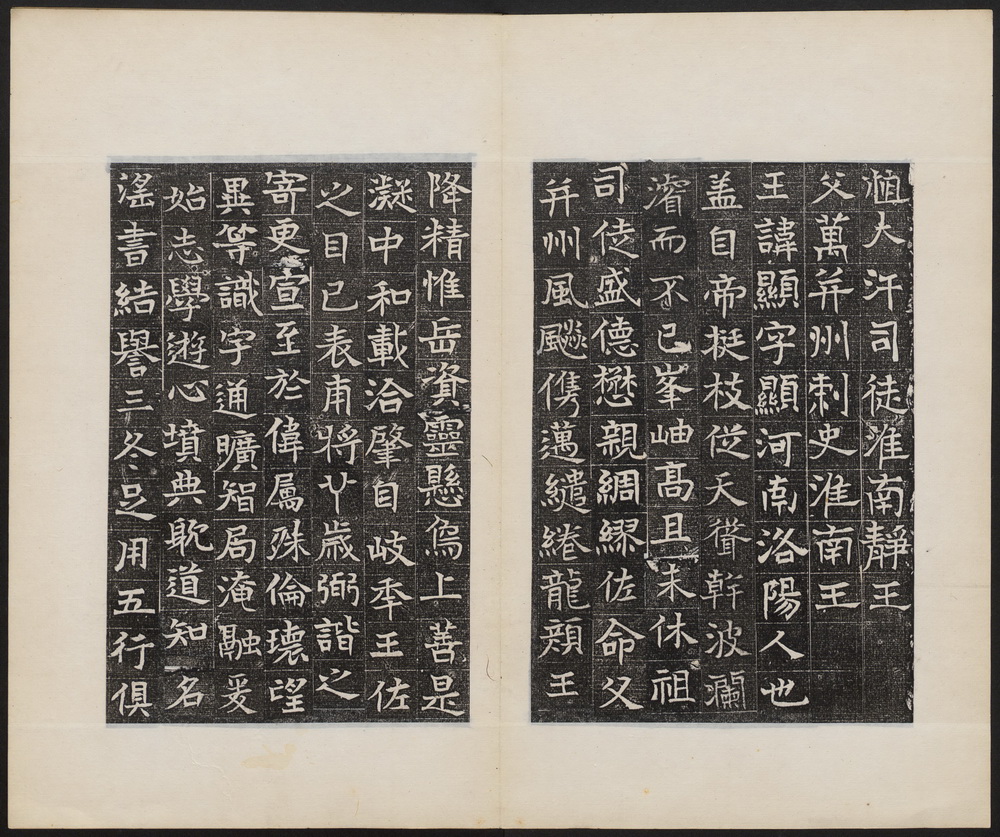 大汗司徒淮南靜王
父萬并州刺史淮南王
王諱顯字顯河南洛陽人也
蓋自帝挺枝從天聳幹波瀾
濬而不已峯岫高且未休祖
司徒盛德懋親綢繆佐命父
并州風飈儁邁繾綣龍顏王
降精惟岳資靈懸象上善是
凝中和載洽肇自岐年王佐
之目已表甫將丱歲弼諧之
寄更宣至於偉屬殊倫瓌望
異等識宇通曠智局淹融爰
始志學遊心墳典耽道知名
淫書結譽三冬足用五行俱